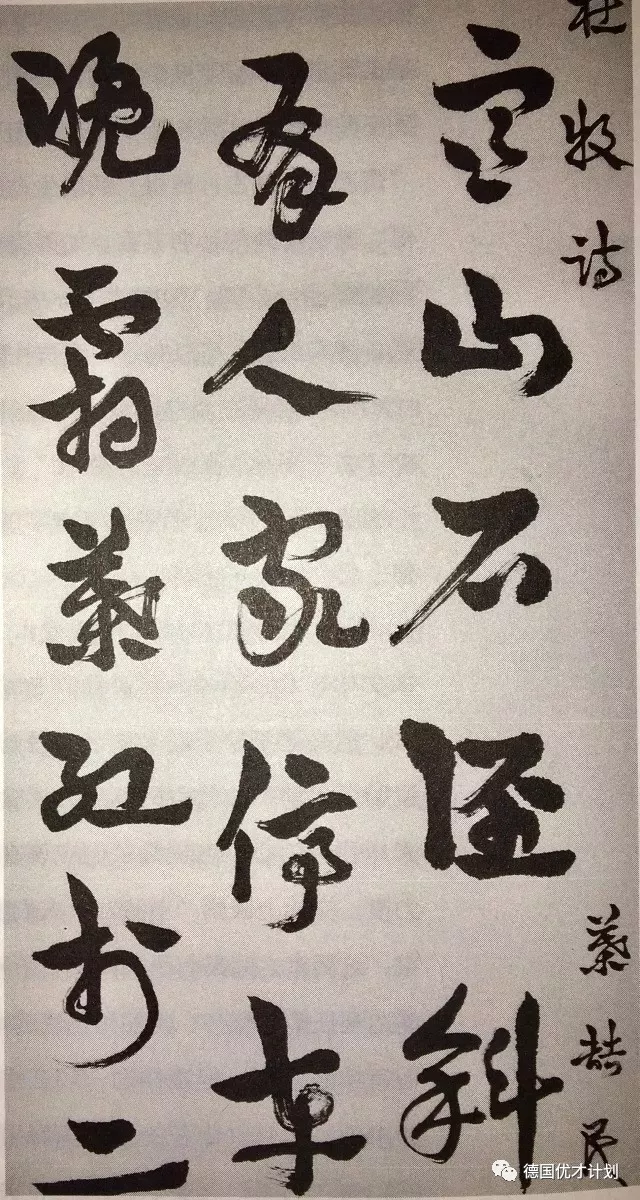 杜牧诗
寒山石径斜
有人家停车
晚霜葉红於二
葉喆民
德国优才计划